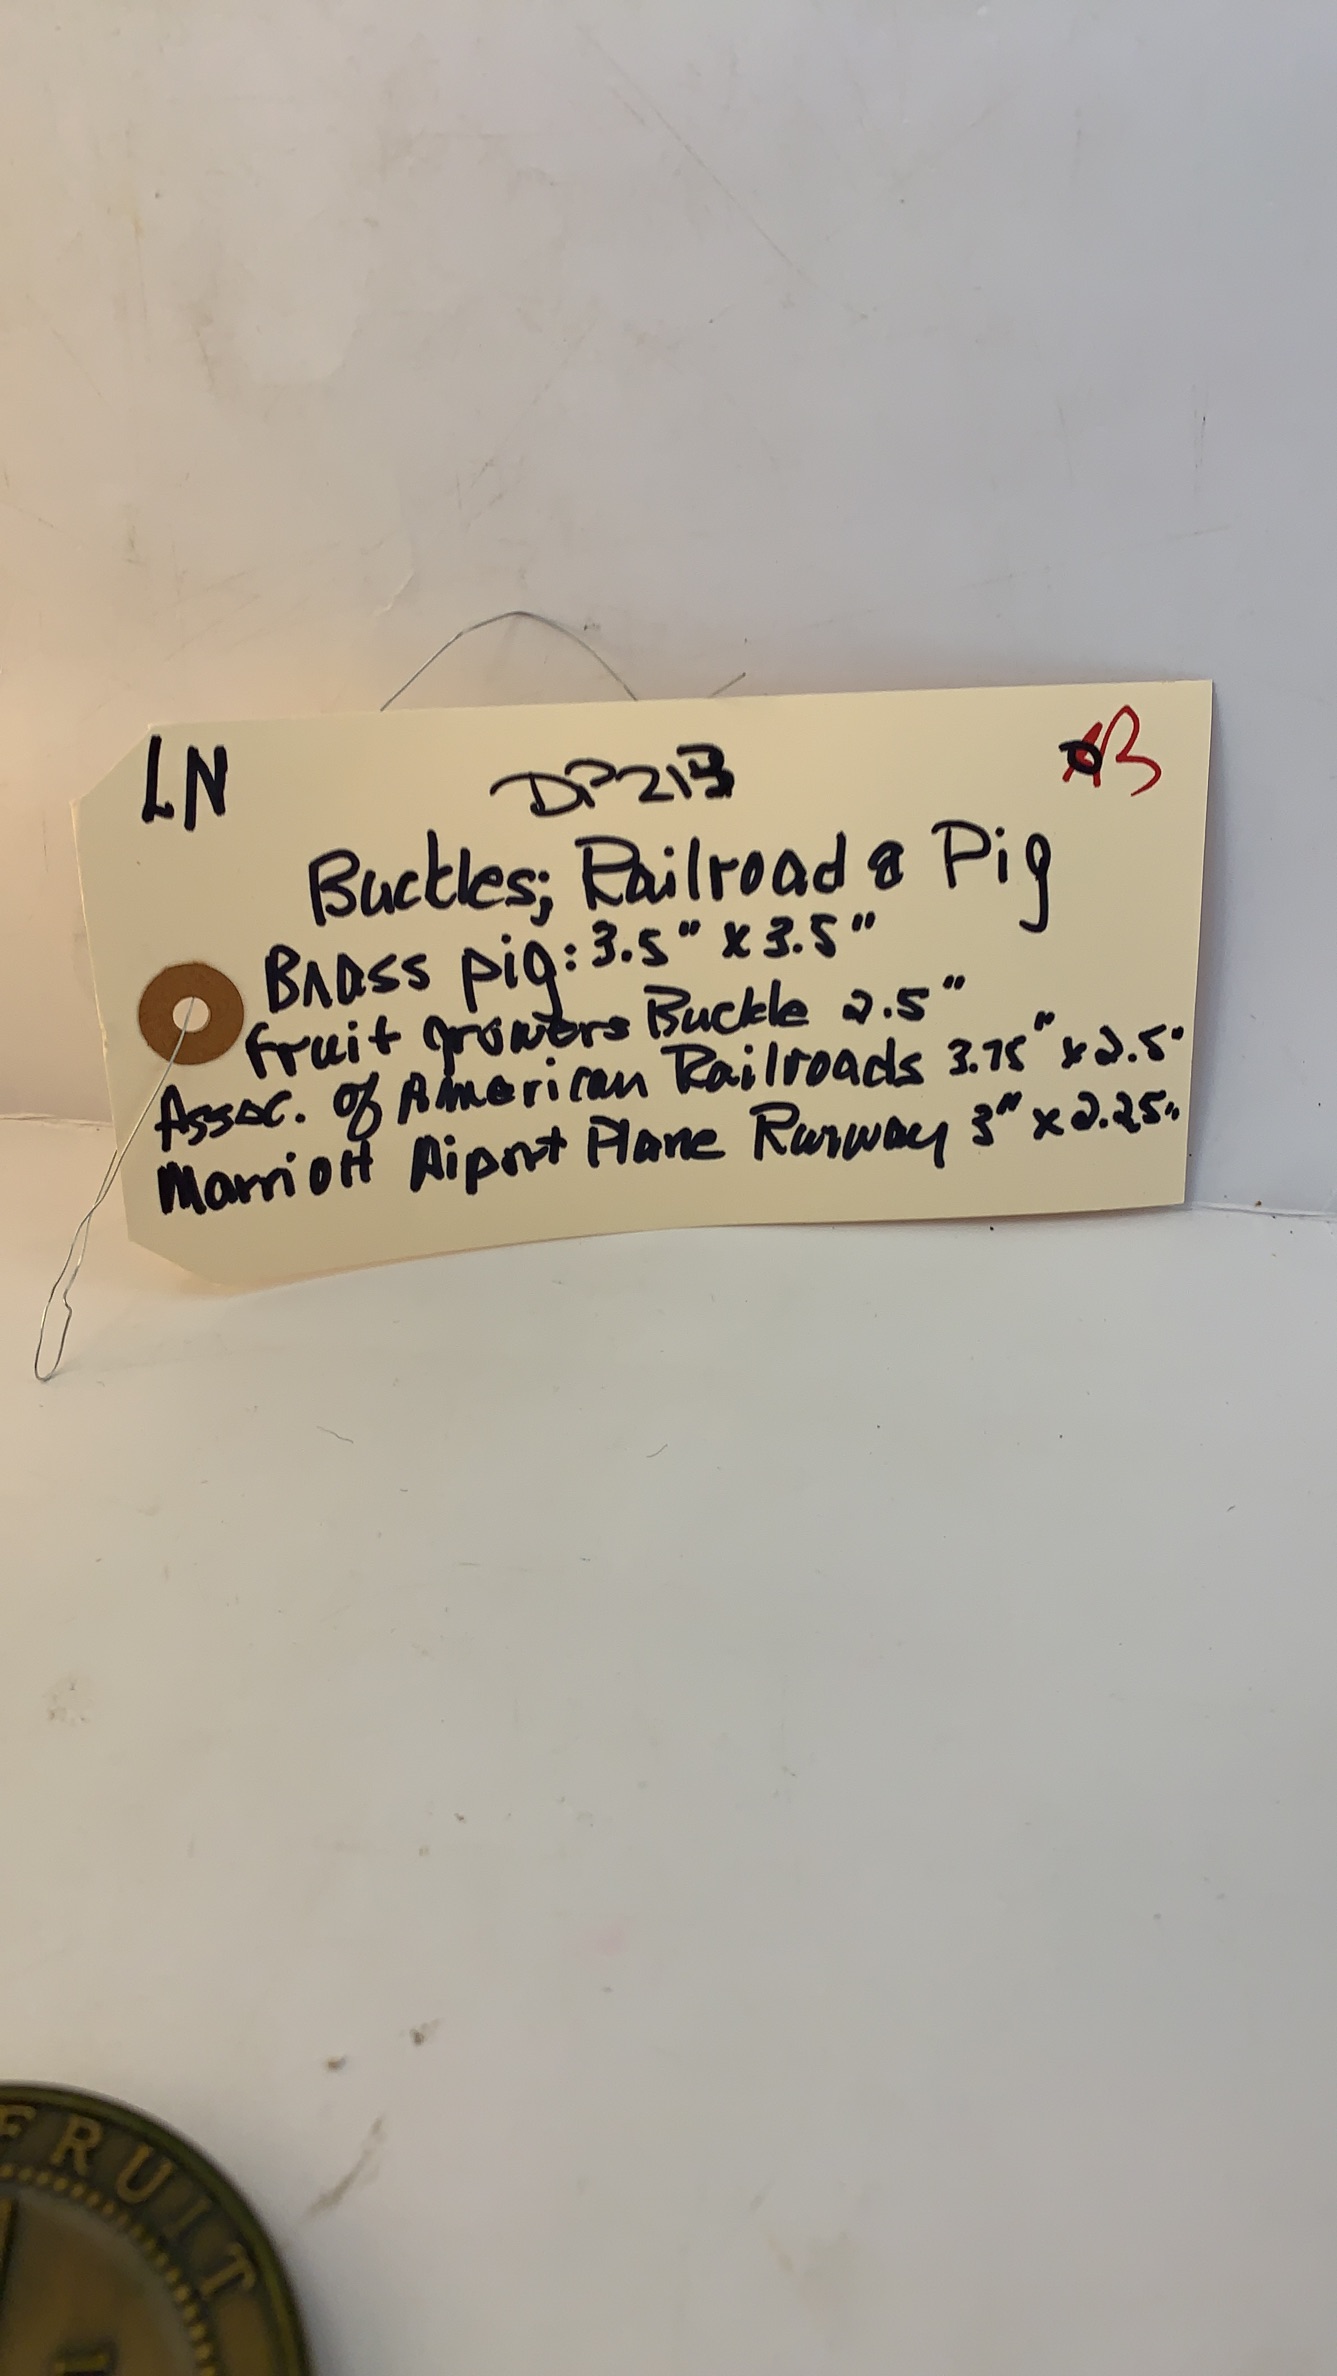 LN
DP213
B
Buckles; Railroad & Pig
Brass pig: 3.5" x 3.5"
Fruit growers Buckle 2.5"
Assoc. of American Railroads 3.75" x 2.5"
Marriott Aiport Plane Runway 3" x 2.25"
FRUIT